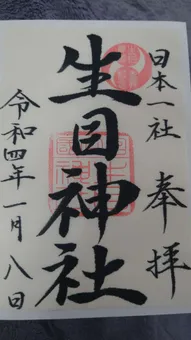 奉拝
日本一社
生目神社
令和四年一月八日